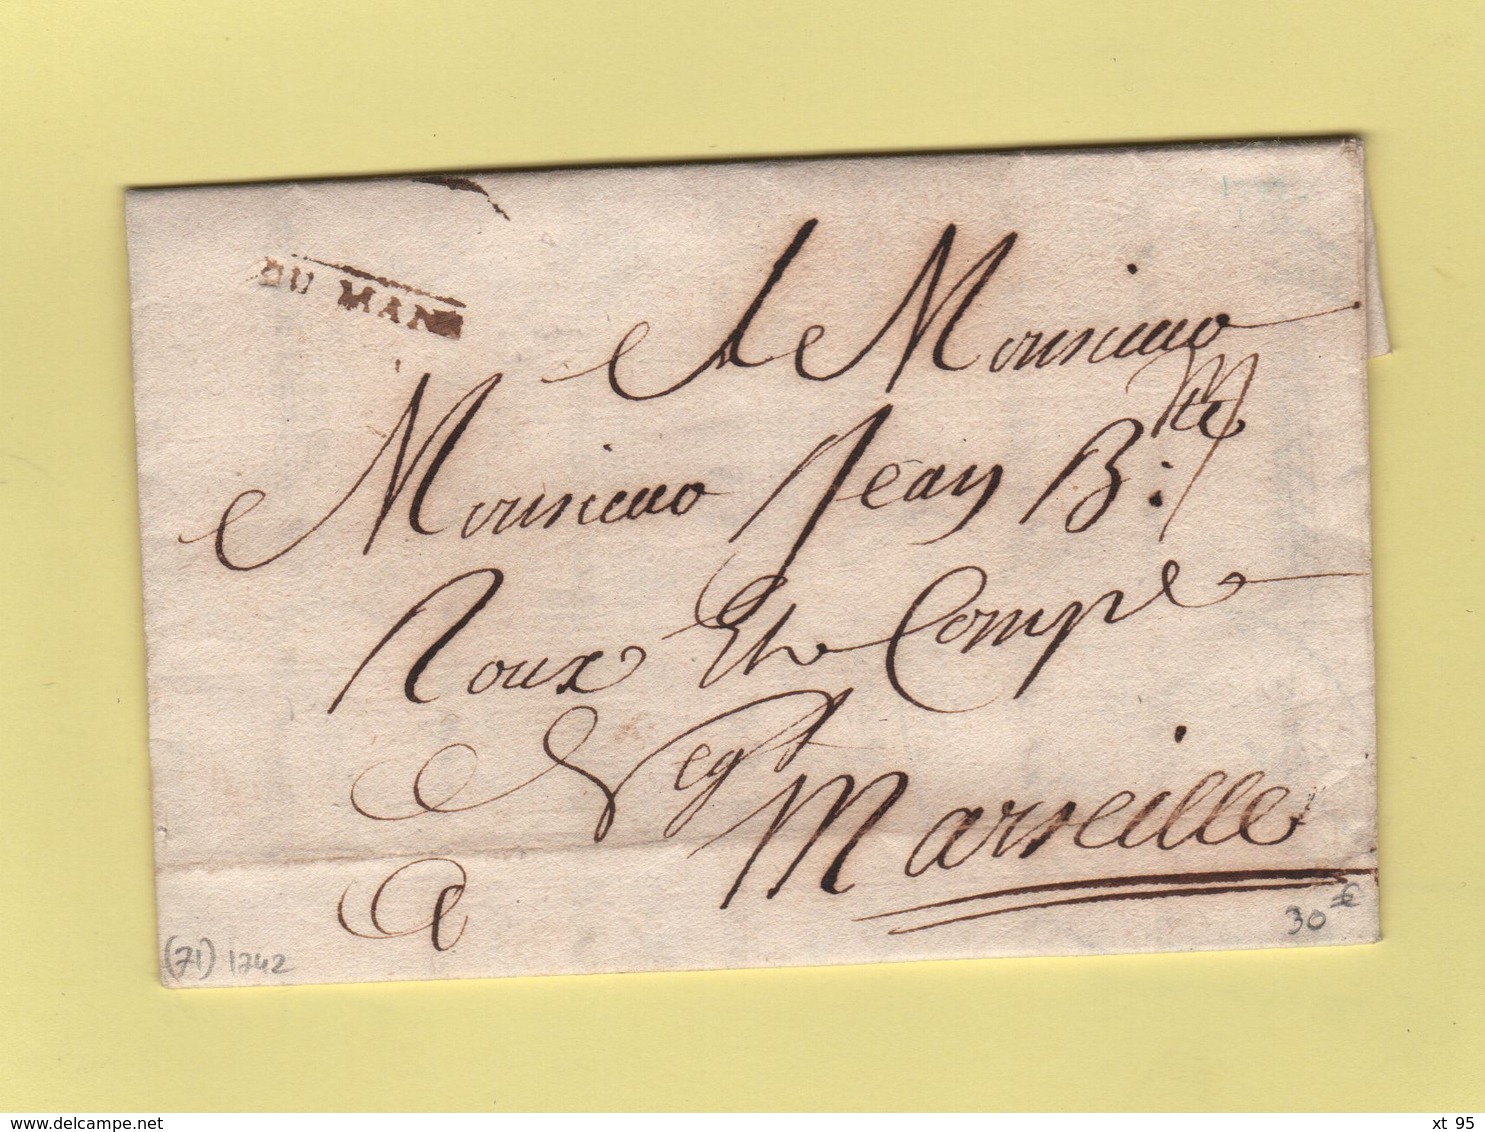 DU MANS
A Monsieur
Monsieur Jean B.te
Roux Et Compe
Negt
A Marseille
(71) 1742
30 €
www.delcampe.net
xt 95